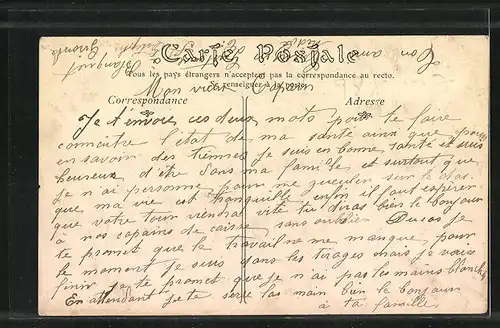 Carte Postale
Tous les pays étrangers n'acceptent pas la correspondance au recto.
Se renseigner à la poste
Mon vieux Copain
Correspondance
Adresse
Je t'envoie ces deux mots pour te faire
connaitre l'état de ma santé ainsi que pour
en savoir des tiennes je suis en bonne santé et suis
heureux d'être dans ma famille et surtout que
je n'ai personne pour me gueuler sur le dos.
que ma vie est tranquille enfin il faut espérer
que votre tour viendra vite tu diras bien le bonjour
à nos copains de caisse sans oublier Ducos je
te promet que le travail ne me manque pour
le moment je suis dans les tirages mais je vaire
finir je te promet que je n'ai pas les mains blanches
En attendant je te serre la main bien le bonjour
à ta famille
Ton ami